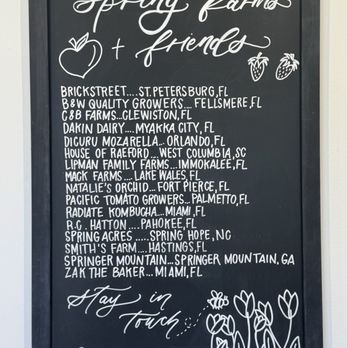 Spring Farms
+ friends
BRICKSTREET....ST. PETERSBURG, FL
B&W QUALITY GROWERS... FELLSMERE, FL
C&B FARMS...CLEWISTON, FL
DAKIN DAIRY...MYAKKA CITY, FL
DIGURU MOZARELLA... ORLANDO, FL
HOUSE OF RAEFORD...WEST COLUMBIA, SC
LIPMAN FAMILY FARMS...IMMOKALEE, FL
MACK FARMS...LAKE WALES, FL
NATALIE'S ORCHID... FORT PIERCE, FL
PACIFIC TOMATO GROWERS...PALMETTO, FL
RADIATE KOMBUCHA...MIAMI, FL
R.C. HATTON.....PAHOKEE, FL
SPRING ACRES.....SPRING HOPE, NC
SMITH'S FARM....HASTINGS, FL
SPRINGER MOUNTAIN...SPRINGER MOUNTAIN, GA
ZAK THE BAKER...MIAMI, FL
Stay in
touch